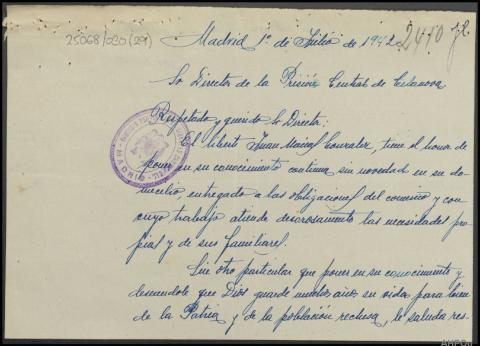 25068/020(29)
2410
Madrid 1º de Julio de 1942
Sr Director de la Prisión Central de Celanova
Respetado y querido Sr Director:
El liberto Juan Macias Gonzalez, tiene el honor de
poner en su conocimiento continua sin novedad en su do-
micilio, entregado a las obligaciones del comercio y con
cuyo trabajo atiende decorosamente las necesidades pro
pias y de sus familiares.
Sin otro particular que poner en su conocimiento y
deseandole que Dios guarde muchos años su vida para bien
de la Patria y de la población reclusa, le saluda res-
MADRID